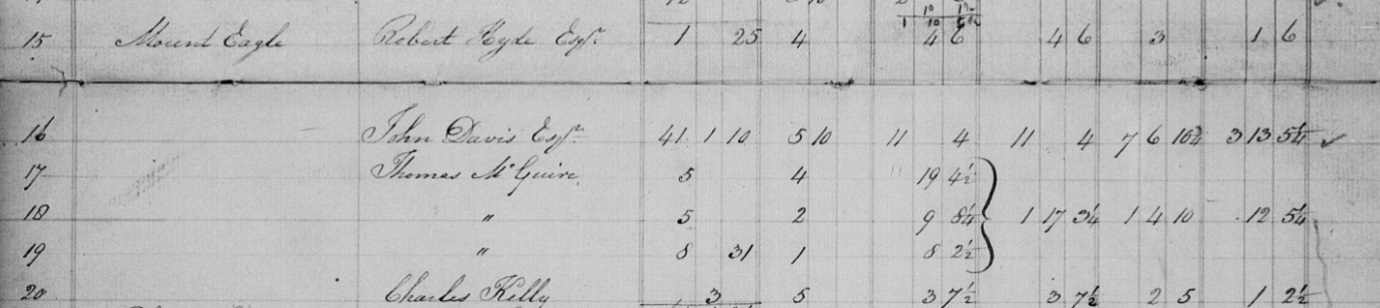 10 1½
1 10 6½
15 Mount Eagle Robert Hyde Esqr. 1 25 4 4 6 4 6 3 1 6
16 John Davis Esqr. 41 1 10 5 10 11 4 11 4 7 6 10¾ 3 13 5¼ ✓
17 Thomas McGuire 5 4 " 19 4½
18 " 5 2 9 8¼ 1 17 3¼ 1 4 10 12 5¼
19 " 8 31 1 8 2½
20 Charles Kelly 1 3 5 3 7½ 3 7½ 2 5 1 2½